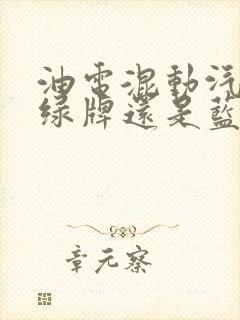 油電混動汽
綠牌還是藍
章元察